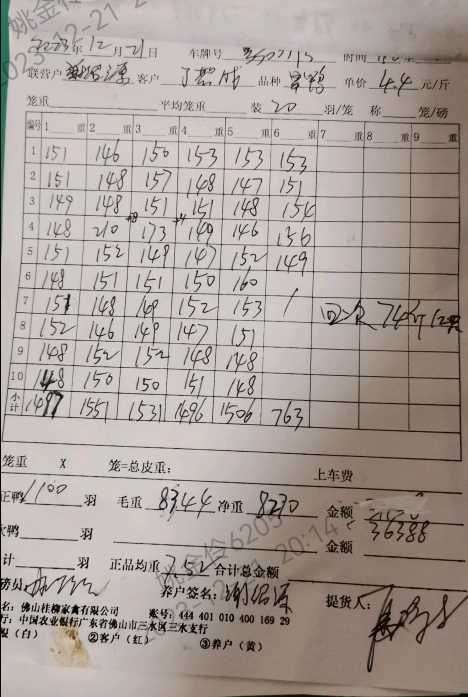 2023年12月21日 车牌号 时间
联营户 客户 品种 单价 4.4 元/斤
笼重 平均笼重 装 20 羽/笼 称 笼/磅
编号 1 重 2 重 3 重 4 重 5 重 6 重 7 重 8 重 9 重
1 151 146 150 153 153 153
2 151 148 157 148 147 151
3 149 148 151 151 148 154
4 148 210 +8 173 +4 149 146 156
5 151 152 149 147 152 149
6 148 151 151 150 160
7 151 148 169 152 153 / 74斤
8 152 146 149 147 151
9 148 152 152 148 148
10 148 150 150 151 148
小计 1497 1551 1531 1496 1506 763
笼重 X 笼=总皮重: 上车费
正鸭 1100 羽 毛重 8344 净重 8270 金额 36388
鸭 羽 金额
计 羽 正品均重 7.52 合计总金额
磅员 养户签名: 提货人:
名: 佛山桂柳家禽有限公司 账号: 444 401 010 400 169 29
行: 中国农业银行广东省佛山市三水区三水支行
(白) ②客户(红) ③养户(黄)
姚金伶6205
2023-12-21 20:14